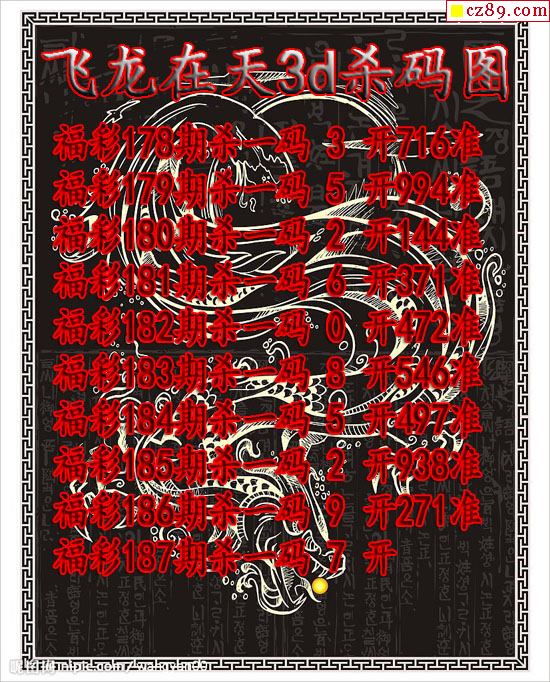 cz89.com
飞龙在天3d杀码图
福彩178期杀一码 3 开716准
福彩179期杀一码 5 开994准
福彩180期杀一码 2 开144准
福彩181期杀一码 6 开371准
福彩182期杀一码 0 开472准
福彩183期杀一码 8 开546准
福彩184期杀一码 5 开497准
福彩185期杀一码 2 开938准
福彩186期杀一码 9 开271准
福彩187期杀一码 7 开